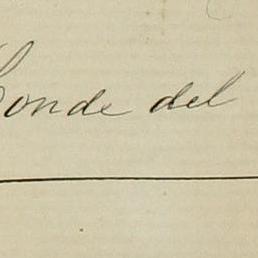 Conde del